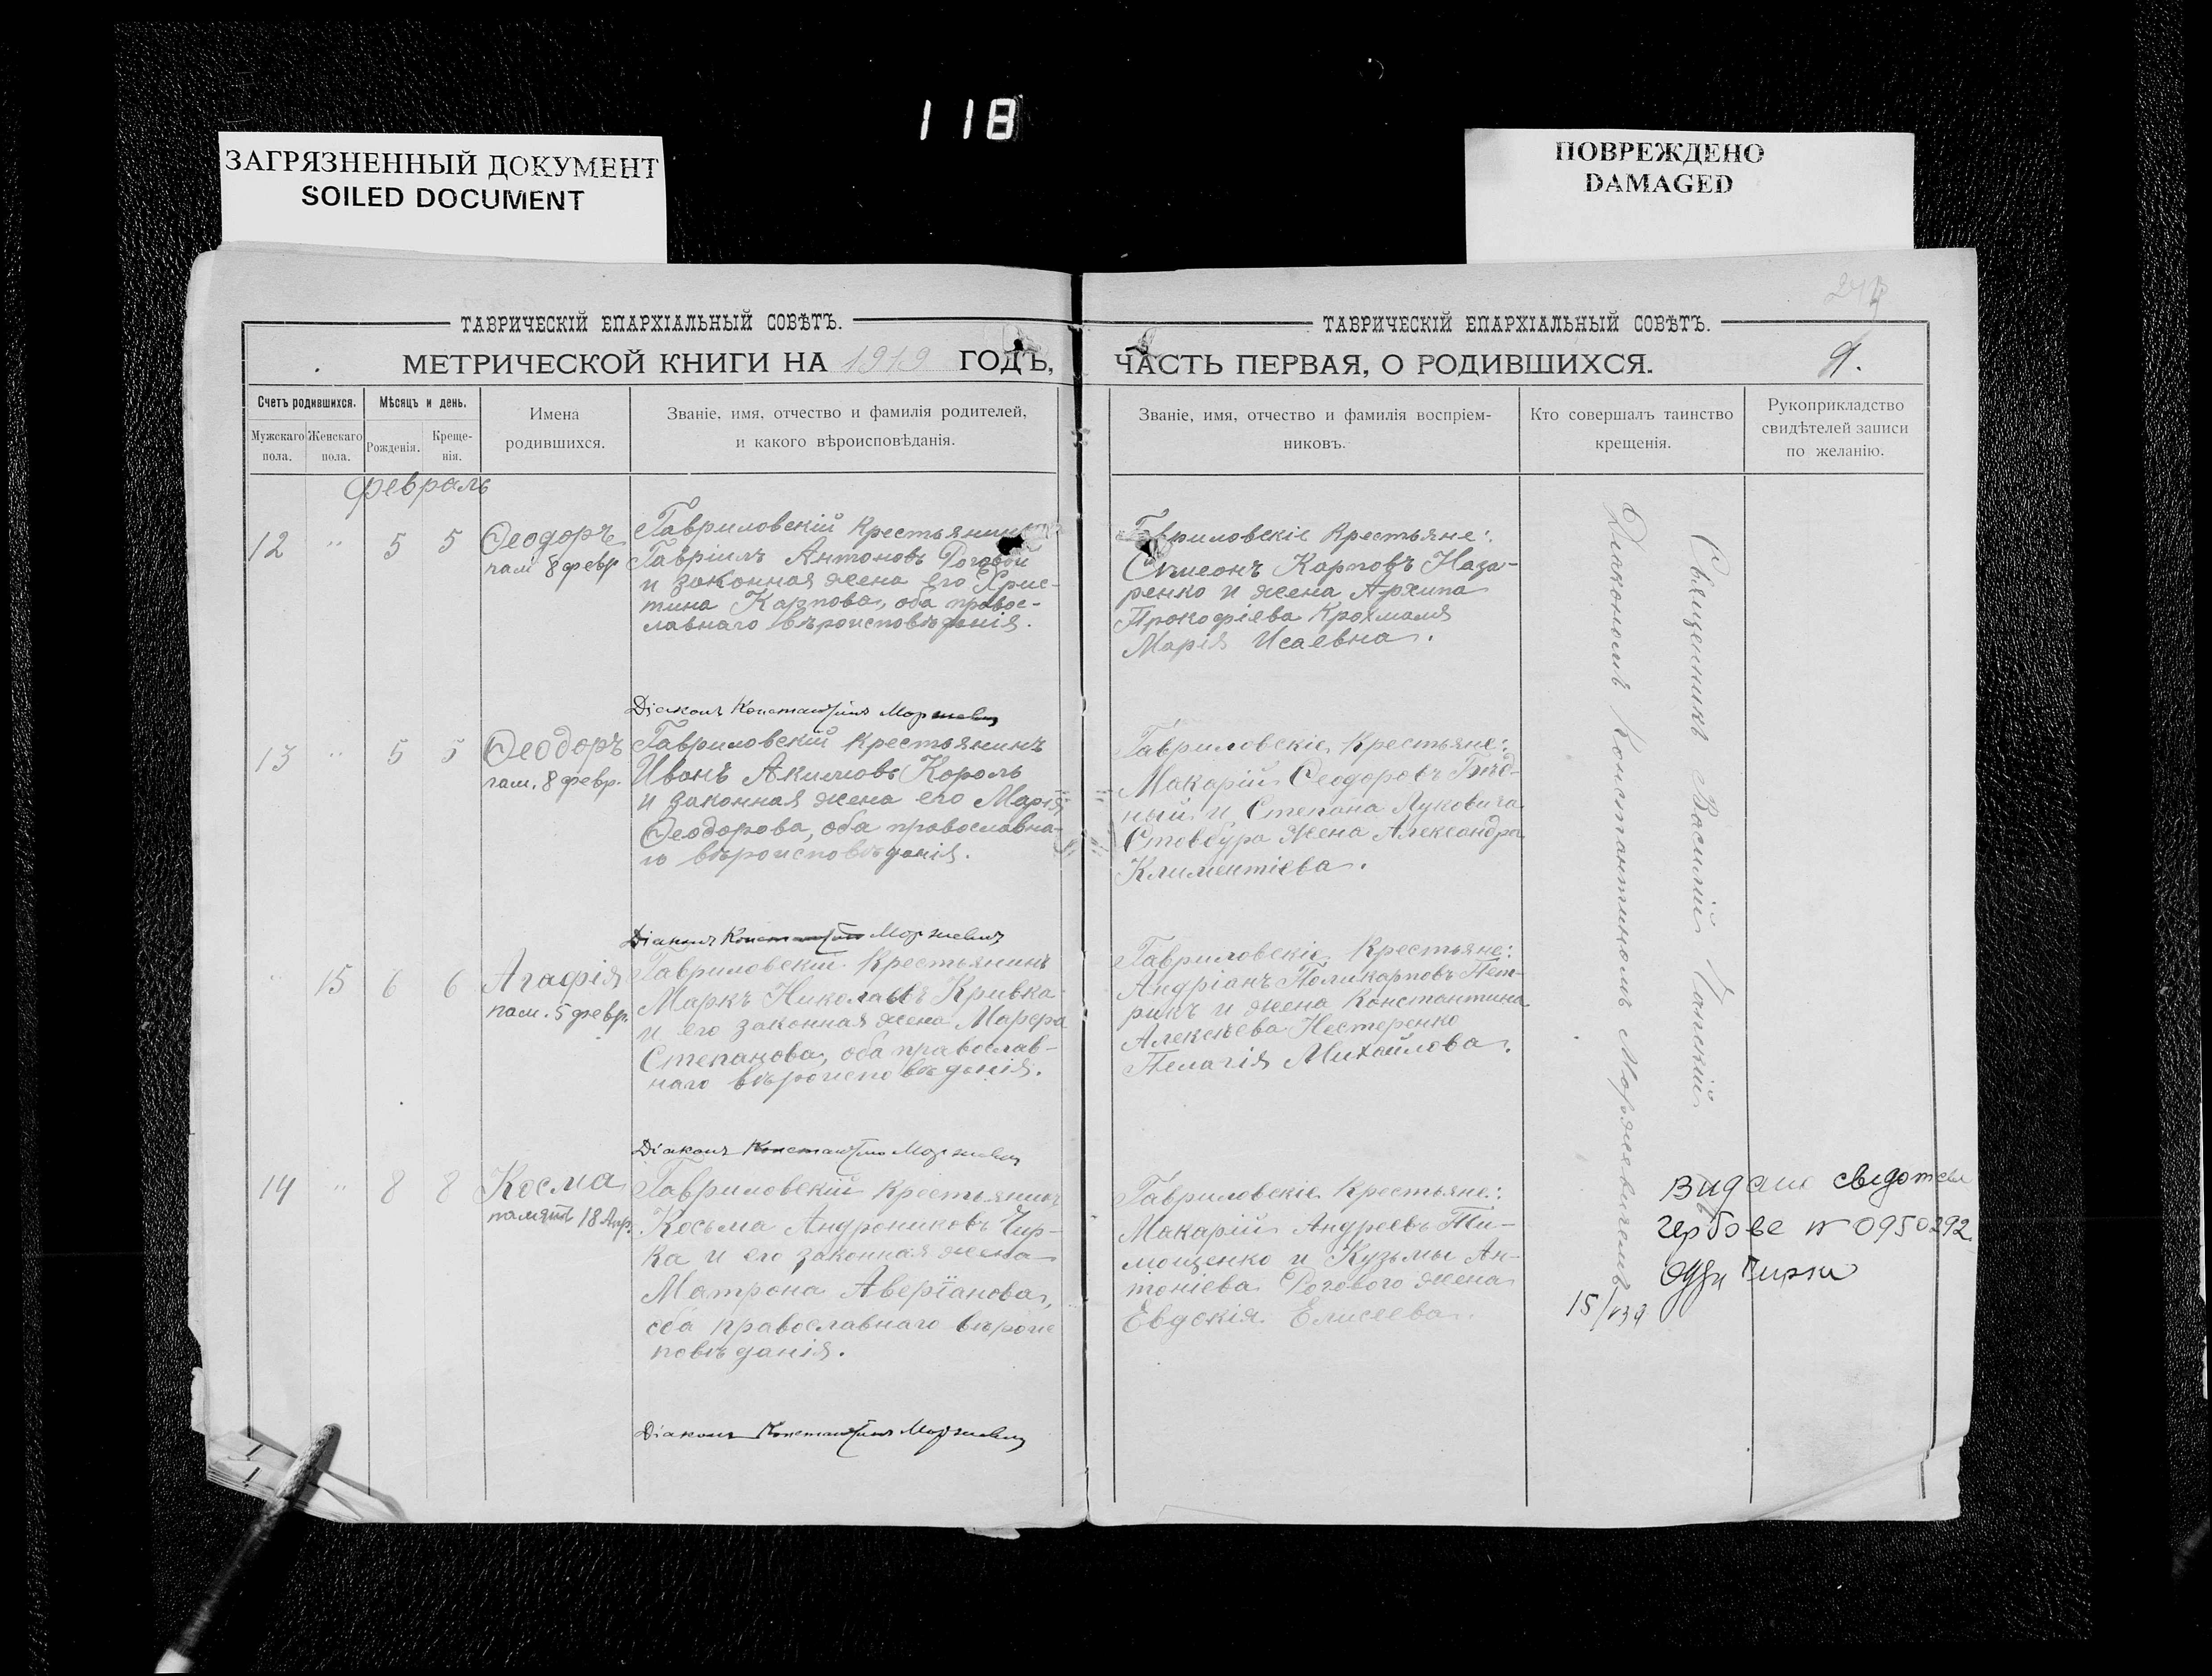 118
ЗАГРЯЗНЕННЫЙ ДОКУМЕНТ
SOILED DOCUMENT
ПОВРЕЖДЕНО
DAMAGED
ТАВРИЧЕСКІЙ ЕПАРХІАЛЬНЫЙ СОВѢТЪ.
МЕТРИЧЕСКОЙ КНИГИ НА 1919 ГОДЪ,
Счетъ родившихся.
Мѣсяцъ и день.
Имена
родившихся.
Званіе, имя, отчество и фамилія родителей,
и какого вѣроисповѣданія.
Мужскаго
пола.
Женскаго
пола.
Рожденія.
Креще-
нія.
Февраль
12 " 5 5
Ѳеодоръ
пам 8 февр
Гавриловскій крестьянинъ
Гавріилъ Антоновъ Роговой
и законная жена его Хрис-
тина Карпова, оба правос-
лавнаго вѣроисповѣданія.
Діаконъ Константинъ Моржевич
13 " 5 5
Ѳеодоръ
пам. 8 февр.
Гавриловскій крестьянинъ
Иванъ Акимовъ Король
и законная жена его Марія
Ѳеодорова, оба православна-
го вѣроисповѣданія.
Діаконъ Константинъ Моржевич
" 15 6 6
Агафія
пам. 5 февр.
Гавриловскій крестьянинъ
Маркъ Николаевъ Кривка
и его законная жена Марфа
Степанова, оба православ-
наго вѣроисповѣданія.
Діаконъ Константинъ Моржевич
14 " 8 8
Косма
память 18 Апр.
Гавриловскій крестьянинъ
Косьма Андрониковъ Чир-
ка и его законная жена
Матрона Аверіанова,
оба православнаго вѣроис
повѣданія.
Діаконъ Константинъ Моржевич
ТАВРИЧЕСКІЙ ЕПАРХІАЛЬНЫЙ СОВѢТЪ.
ЧАСТЬ ПЕРВАЯ, О РОДИВШИХСЯ.
9.
Званіе, имя, отчество и фамилія воспріем-
никовъ.
Кто совершалъ таинство
крещенія.
Рукоприкладство
свидѣтелей записи
по желанію.
Гавриловскіе крестьяне:
Сѵмеонъ Карповъ Наза-
ренко и жена Архипа
Прокофіева Крохмаля
Марія Исаевна.
Гавриловскіе крестьяне:
Макарій Ѳеодоровъ Бѣд-
ный и Степана Луковича
Стовбура жена Александра
Климентіева.
Гавриловскіе крестьяне:
Андріанъ Поликарповъ Пет-
рикъ и жена Константина
Алексѣева Нестеренко
Пелагія Михайлова.
Гавриловскіе крестьяне:
Макарій Андреевъ Ти-
мощенко и Кузьмы Ан-
тоніева Рогового жена
Евдокія Елисеева.
Священникъ Василій
Діакономъ Константиномъ Моржевичемъ
Видано свідотсво
гербове № 0950292
15/